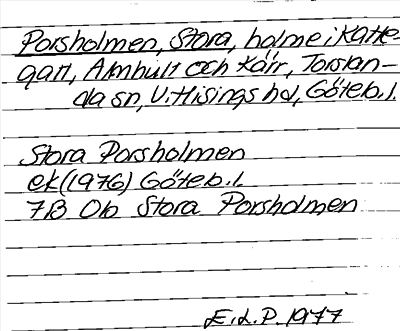 Porsholmen, Stora, holme i Katte-
gatt, Amhult och Kärr, Torslan-
da sn, V. Hisings hd, Göteb. l.
Stora Porsholmen
ek (1976) Göteb. l.
7B 0b Stora Porsholmen
E. L. P. 1977